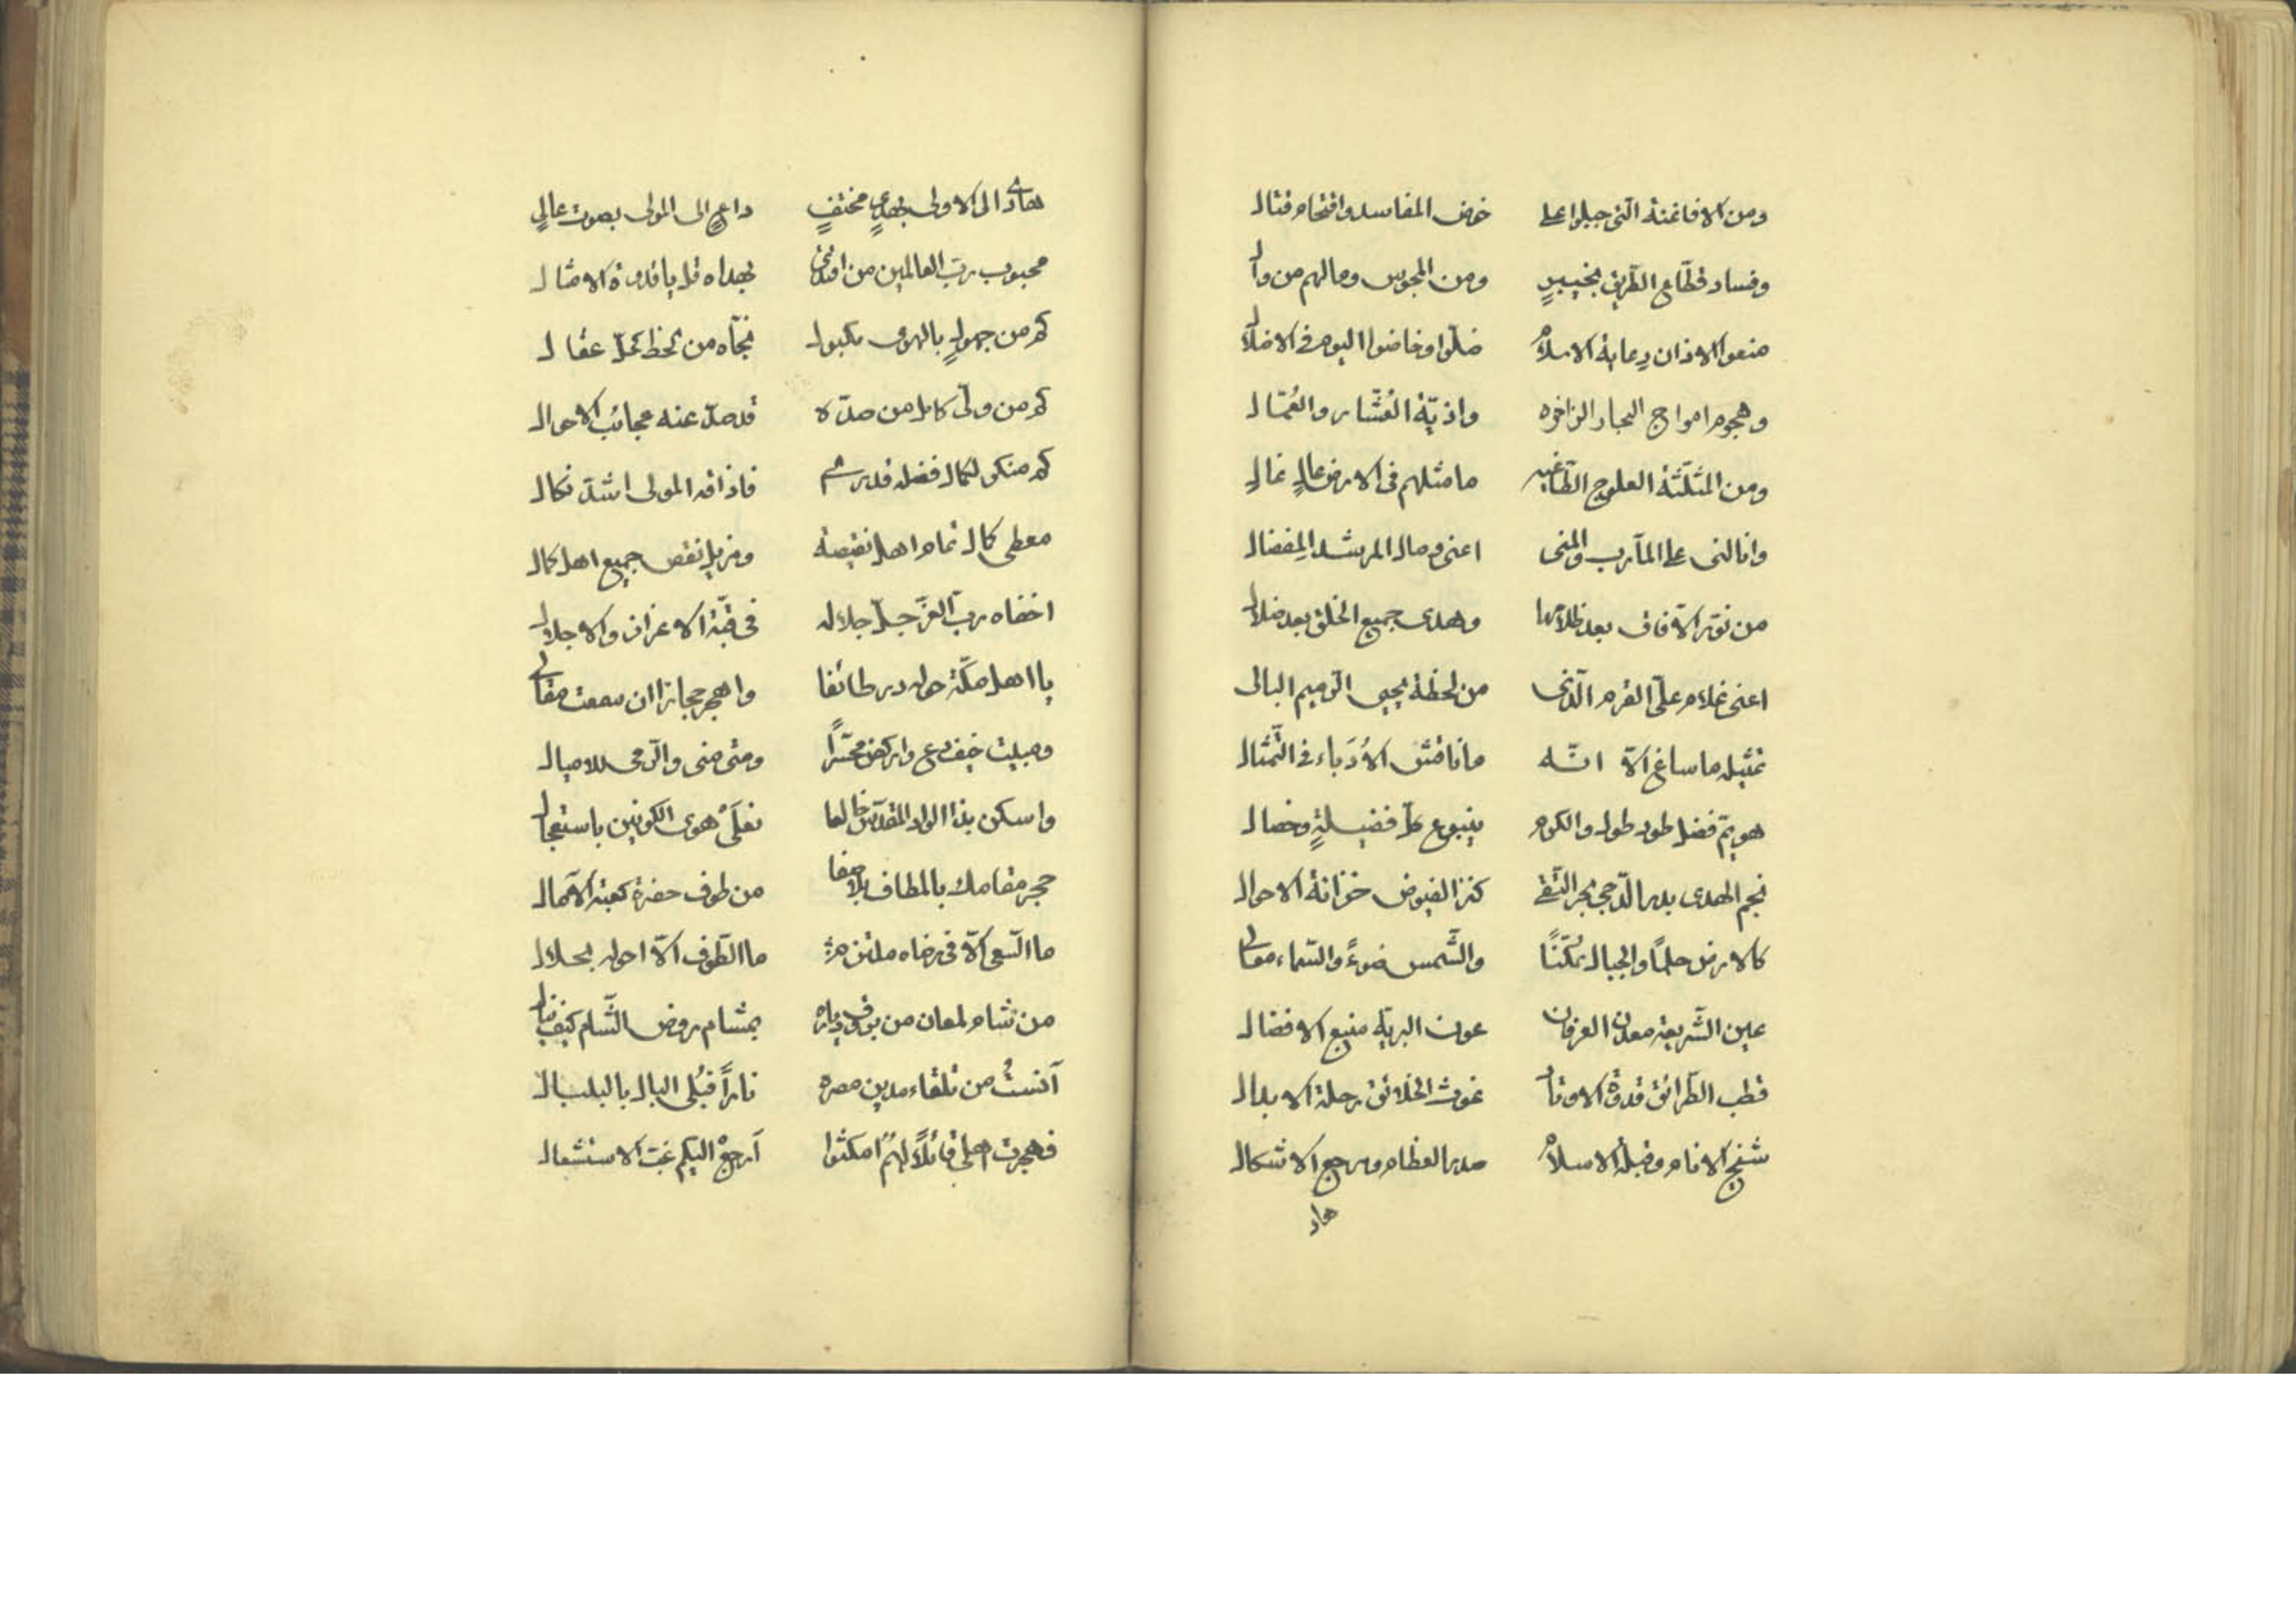 ومن الافاغنة التى جبلوا على خوض المفاسد واقتحام قتال
وفساد قطّاع الطّريق بخيبرٍ ومن المجوس ومالهم من وال
منعوا الاذان رعاية الاسلام ضلّوا وخاضوا اليوم فى الاضلال
وهجوم امواج البحار الزاخره واذيّة العُشّار والعُمّال
ومن المثلّثة العلوج الطّاغيه ما مثلهم فى الارض عالٍ غالٍ
وانالنى على المآرب والمنى اعنى وصال المرشد المِفضال
من نوّر الآفاق بعد ظلامها وهدى جميع الخلق بعد ضلال
اعنى غلام علىّ القرم الّذى من لحظة يحيى الرّميم البالى
تمثيله ما ساغ الّا انّه ما ناقش الأُدَباء فى التّمثال
هو يمّ فضل طود طول والكرم ينبوع كلّ فضيلةٍ وخصال
نجم الهدى بدر الدّجى بحر التّقى كنز الفيوض خزانة الاحوال
كالارض حلمًا والجبال تمكّنًا والشّمس ضوءً والسّماء معالى
عين الشّريعة معدن العرفان عون البريّة منبع الافضال
قطب الطّرائق قدوة الاوتاد غوث الخلائق رحلة الابدال
شيخ الانام وقبلة الاسلام صدر العظام ومرجع الاشكال
هاد
هادٍ الى الاولى بهدىٍ مختفٍ داعٍ الى المولى بصوت عالٍ
محبوب ربّ العالمين من اقتدى بهداه قل يا قدوة الامثال
كم من جهول بالهوى مكبول نجّاه من لحظ كحلّ عقال
كم من ولىّ كامل من صدّه قد صدّ عنه عجائب الاحوال
كم منكر لكمال فضله قد فاذاقه المولى اشدّ نكال
معطى كمال تمام اهل نقيصة ومزيل نقص جميع اهل كمال
اخفاه ربّ العزّ جلّ جلاله فى قبّة الاعزاز والاجلال
يا اهل مكّة حوله در طائفا واهجر حجازا ان سمعت مقالى
ومبيت خيف دع واركض محسّرًا ومنى منى والرّمى للاميال
واسكن بذا الوادى المقدّس خالعا نعلَىْ هوى الكونين باستعجال
حجر مقامك بالمطاف بلا صفا من طوف حضرة كعبة الآمال
ما السّعى الّا فى رضاه ملتزم ما الطّوف الّا حوله بحلال
من شام لمعان من برق دياره بمشام روض الشّام كيف يبال
آنستُ من تلقاء مدين مصره نارًا تُبلى البال بالبلبال
فهجرت اهلى قائلًا لهُمُ امكثوا آرجعْ اليكم غبّ الاستشعال